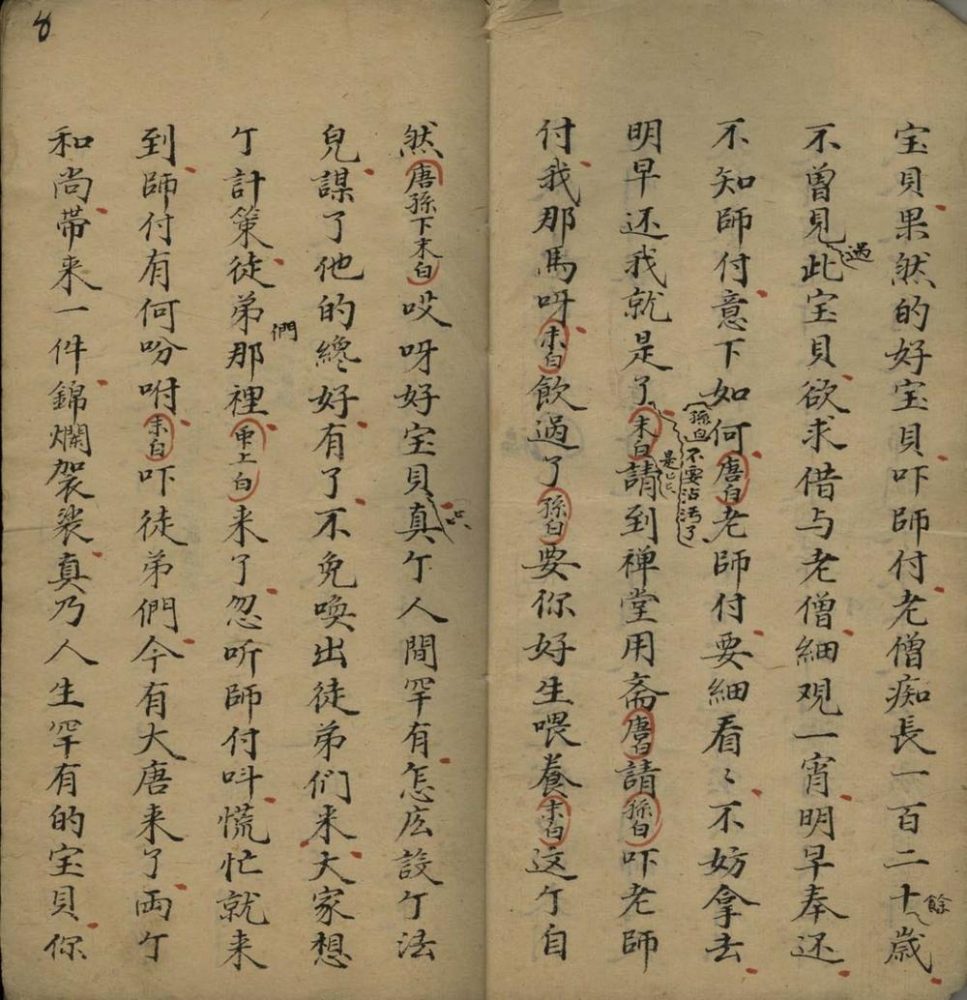 宝貝果然的好宝貝吓師付老僧痴長一百二十餘歲
不曾見過此宝貝欲求借与老僧細观一宵明早奉还
不知師付意下如何唐白老師付要細看〻不妨拿去
孫白不要沾汚了
明早还我就是了末白是〻請到禅堂用斋唐白請孫白吓老師
付我那馬呀末白飲過了孫白要你好生喂養末白这亇自
然唐孫下末白哎呀好宝貝〻〻真亇人間罕有怎庅設亇法
兒謀了他的纔好有了不免喚出徒弟们来大家想
亇計策徒弟們那裡重上白来了忽听師付呌慌忙就来
到師付有何吩咐末白吓徒弟們今有大唐来了両亇
和尚帶来一件錦襴袈裟真乃人生罕有的宝貝你
8